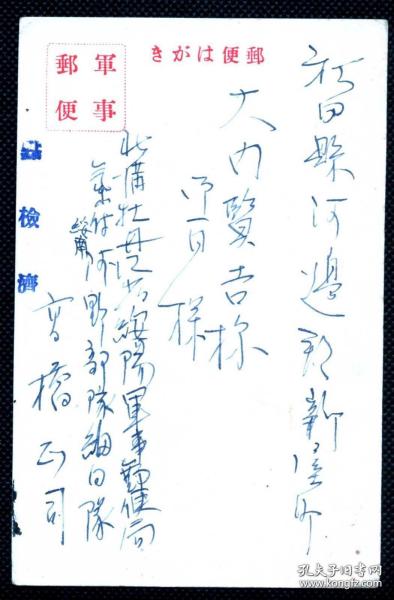 郵便はがき
軍事
郵便
検濟
秋田縣河邊郡新屋町
大内賢吉様
御一同様
北満牡丹江省綏陽軍事郵便局
気付河野部隊細田隊
綏南
高橋正司
孔夫子旧书网
www.kongfz.com